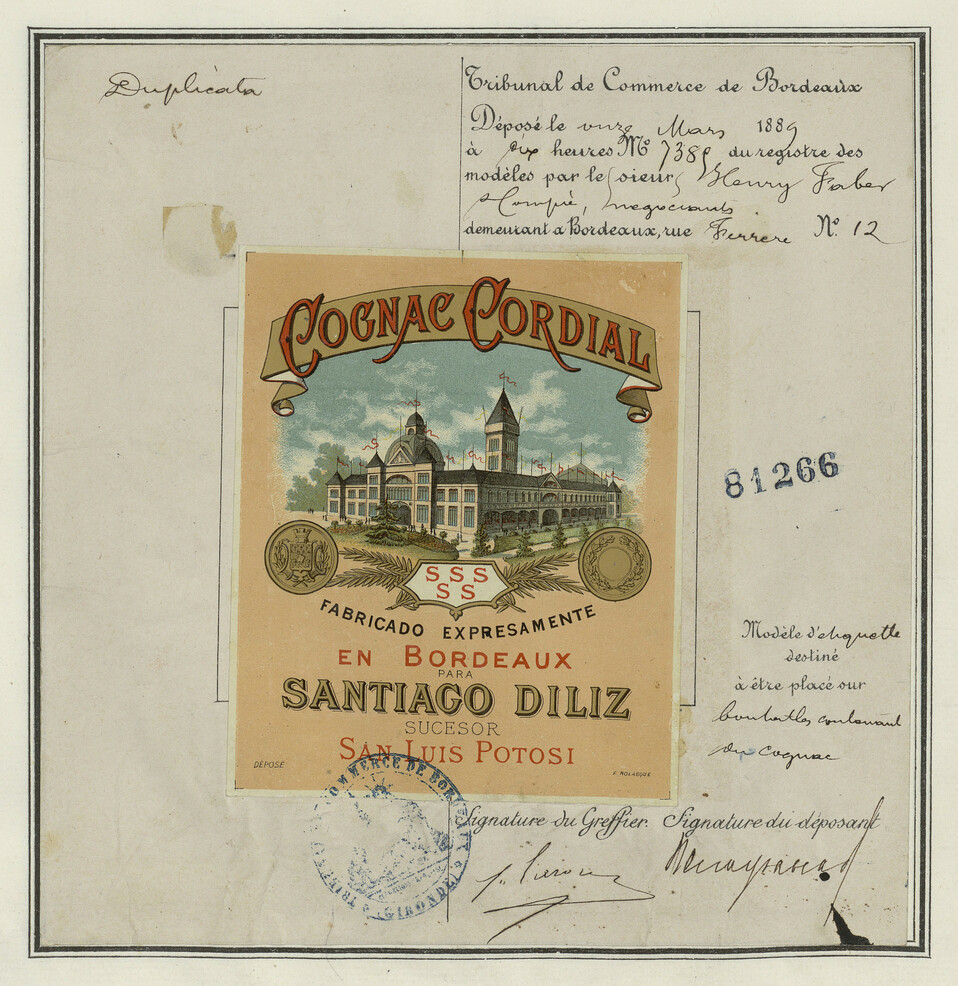 Duplicata
Tribunal de Commerce de Bordeaux
Déposé le onze Mars 1889
à dix heures No 7389 du registre des
modèles par le sieur Henry Faber
& Compie, négociants
demeurant a Bordeaux, rue Ferrere No. 12
COGNAC CORDIAL
SSS
SS
FABRICADO EXPRESAMENTE
EN BORDEAUX
PARA
SANTIAGO DILIZ
SUCESOR
SAN LUIS POTOSI
DÉPOSÉ
81266
Modèle d'etiquette
destiné
à être placé sur
bouteilles contenant
du cognac
COMMERCE DE BORDEAUX
(GIRONDE)
Signature du Greffier. Signature du déposant